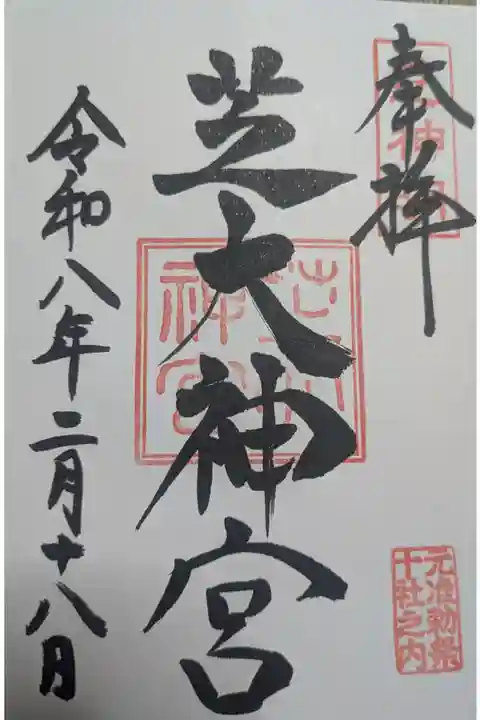 奉拝
芝大神宮
令和八年二月十八日
元准勅祭
十社之内